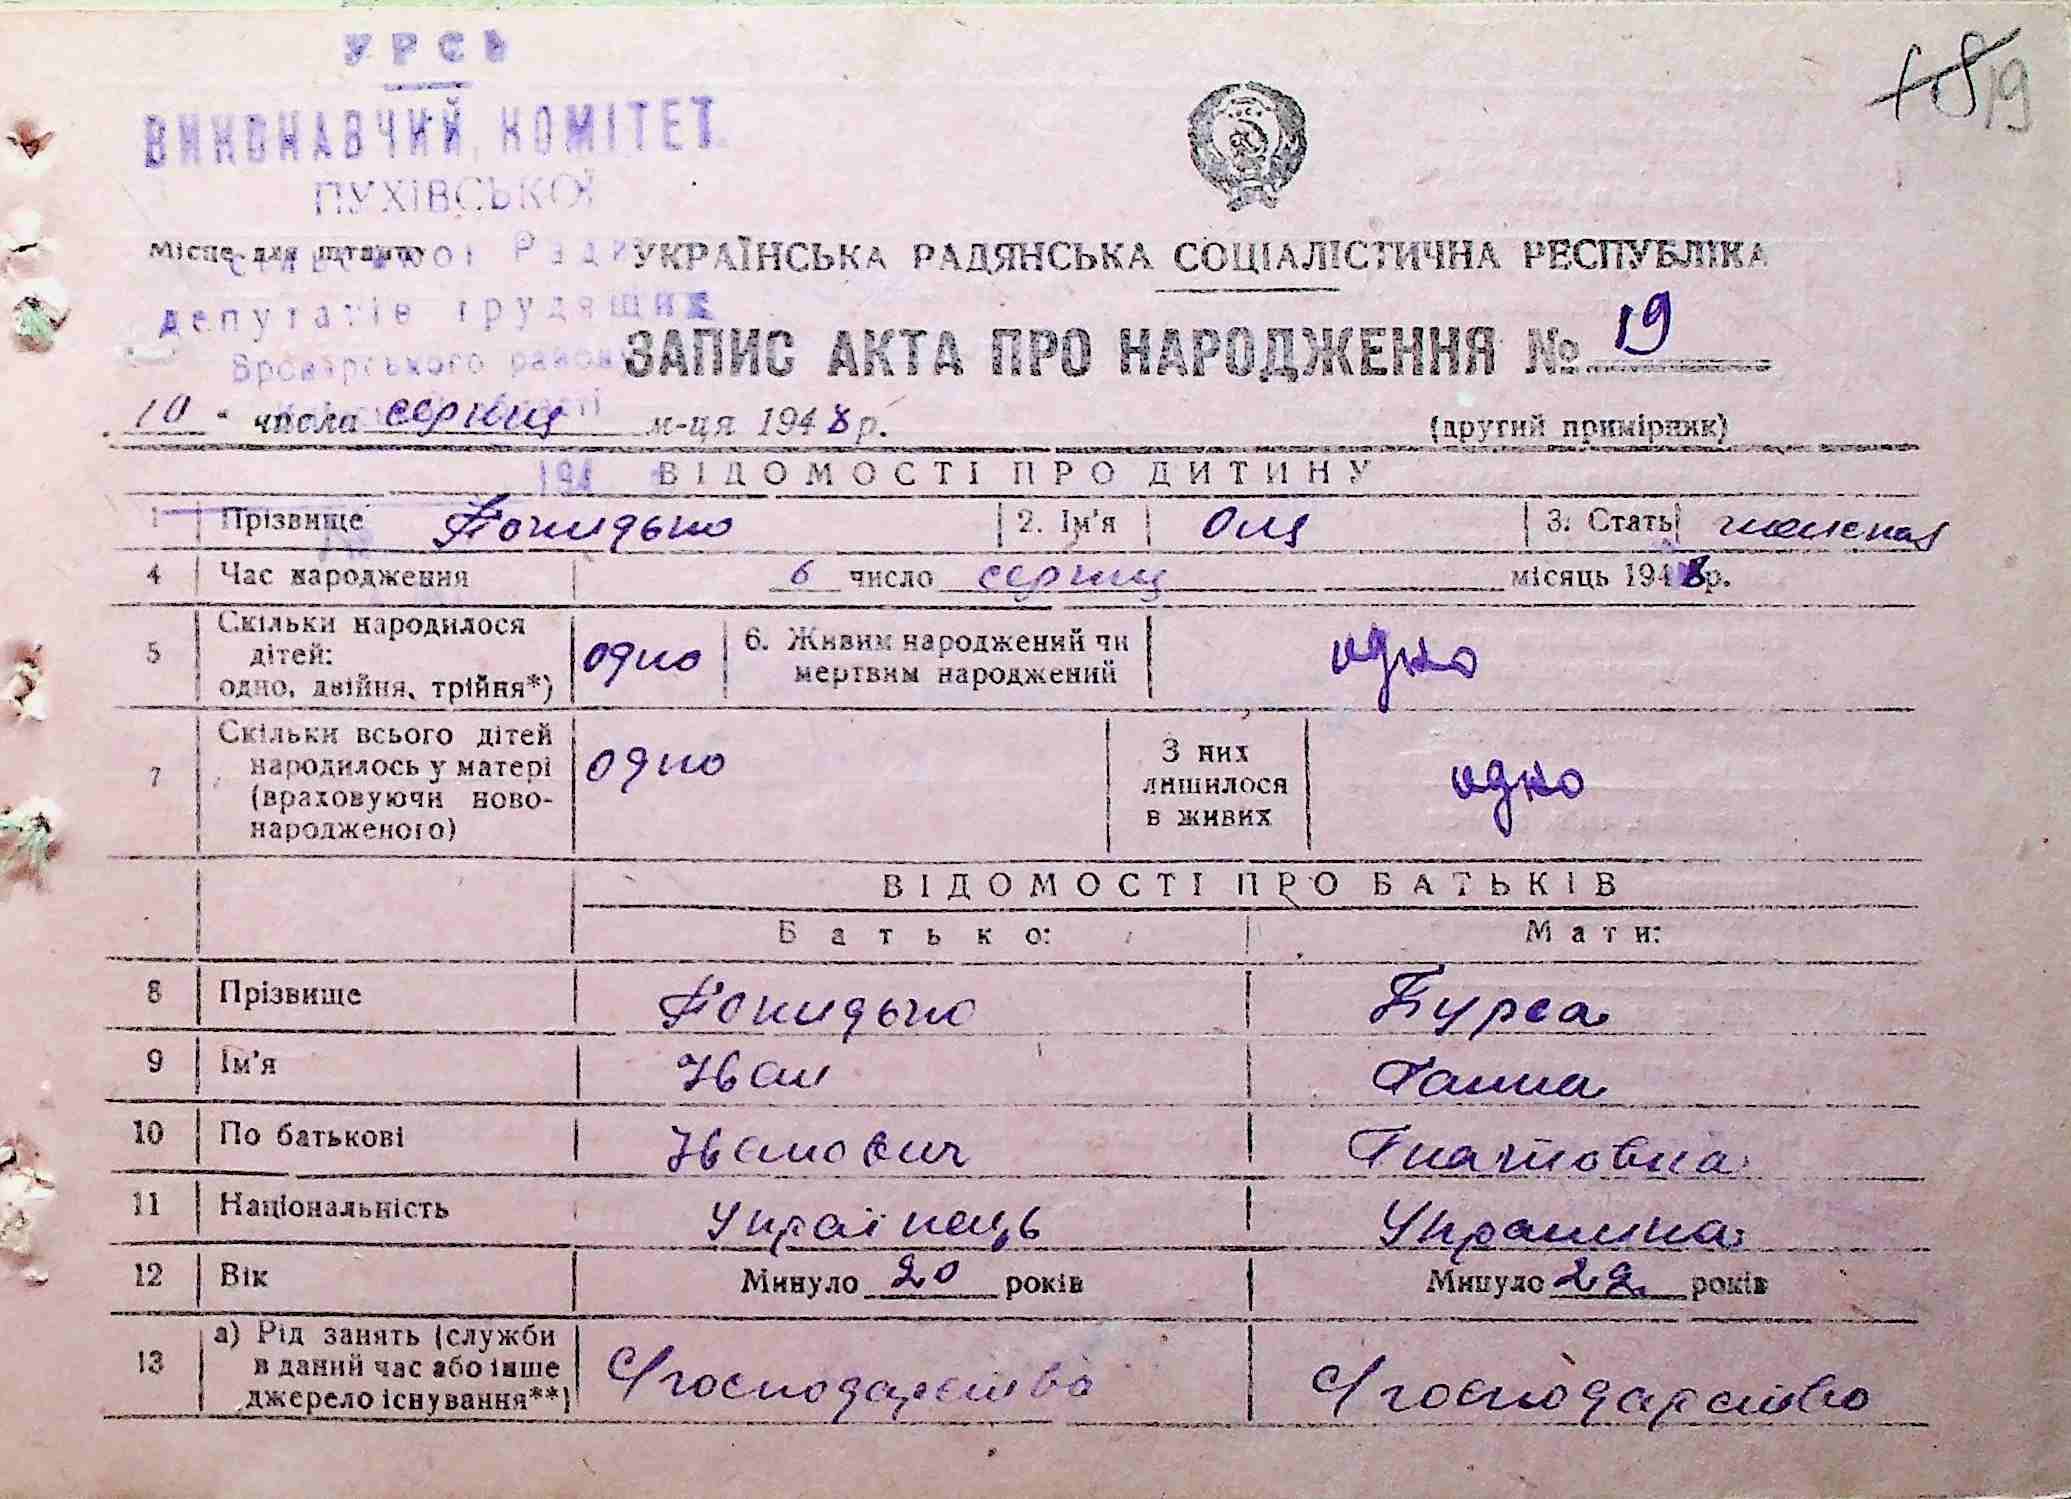 УРСР
ВИКОНАВЧИЙ КОМІТЕТ
ПУХІВСЬКОЇ
Місце для штампу
Ради
УКРАЇНСЬКА РАДЯНСЬКА СОЦІАЛІСТИЧНА РЕСПУБЛІКА
депутатів трудящих
Броварського району
ЗАПИС АКТА ПРО НАРОДЖЕННЯ № 19
10 числа серпня м-ця 1948 р.
(другий примірник)
194
ВІДОМОСТІ ПРО ДИТИНУ
1 Прізвище 2. Ім'я Оля 3. Стать
4 Час народження 6 число серпня місяць 1948 р.
5 Скільки народилося дітей: одно, двійня, трійня*) одно 6. Живим народжений чи мертвим народжений одно
7 Скільки всього дітей народилось у матері (враховуючи ново-народженого) одно З них лишилося в живих одно
ВІДОМОСТІ ПРО БАТЬКІВ
Батько: Мати:
8 Прізвище Бурса
9 Ім'я Іван Ганна
10 По батькові Іванович Гнатовна
11 Національність Українець Украинка
12 Вік Минуло 20 років Минуло 22 років
13 а) Рід занять (служби в даний час або інше джерело існування**) С/господарство С/господарство